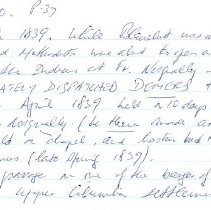 P. 37
1839. While Blanchet was a
d Methodists was about to open a
the Indians at Ft. Nisqually
ATELY DISPATCHED DEMERS t
April 1839 held a 10 days
Nisqually (he there made a
ild a chapel, and hasten back t
(late Spring 1839).
passage in one of the barges of
Upper Columbia settlemen